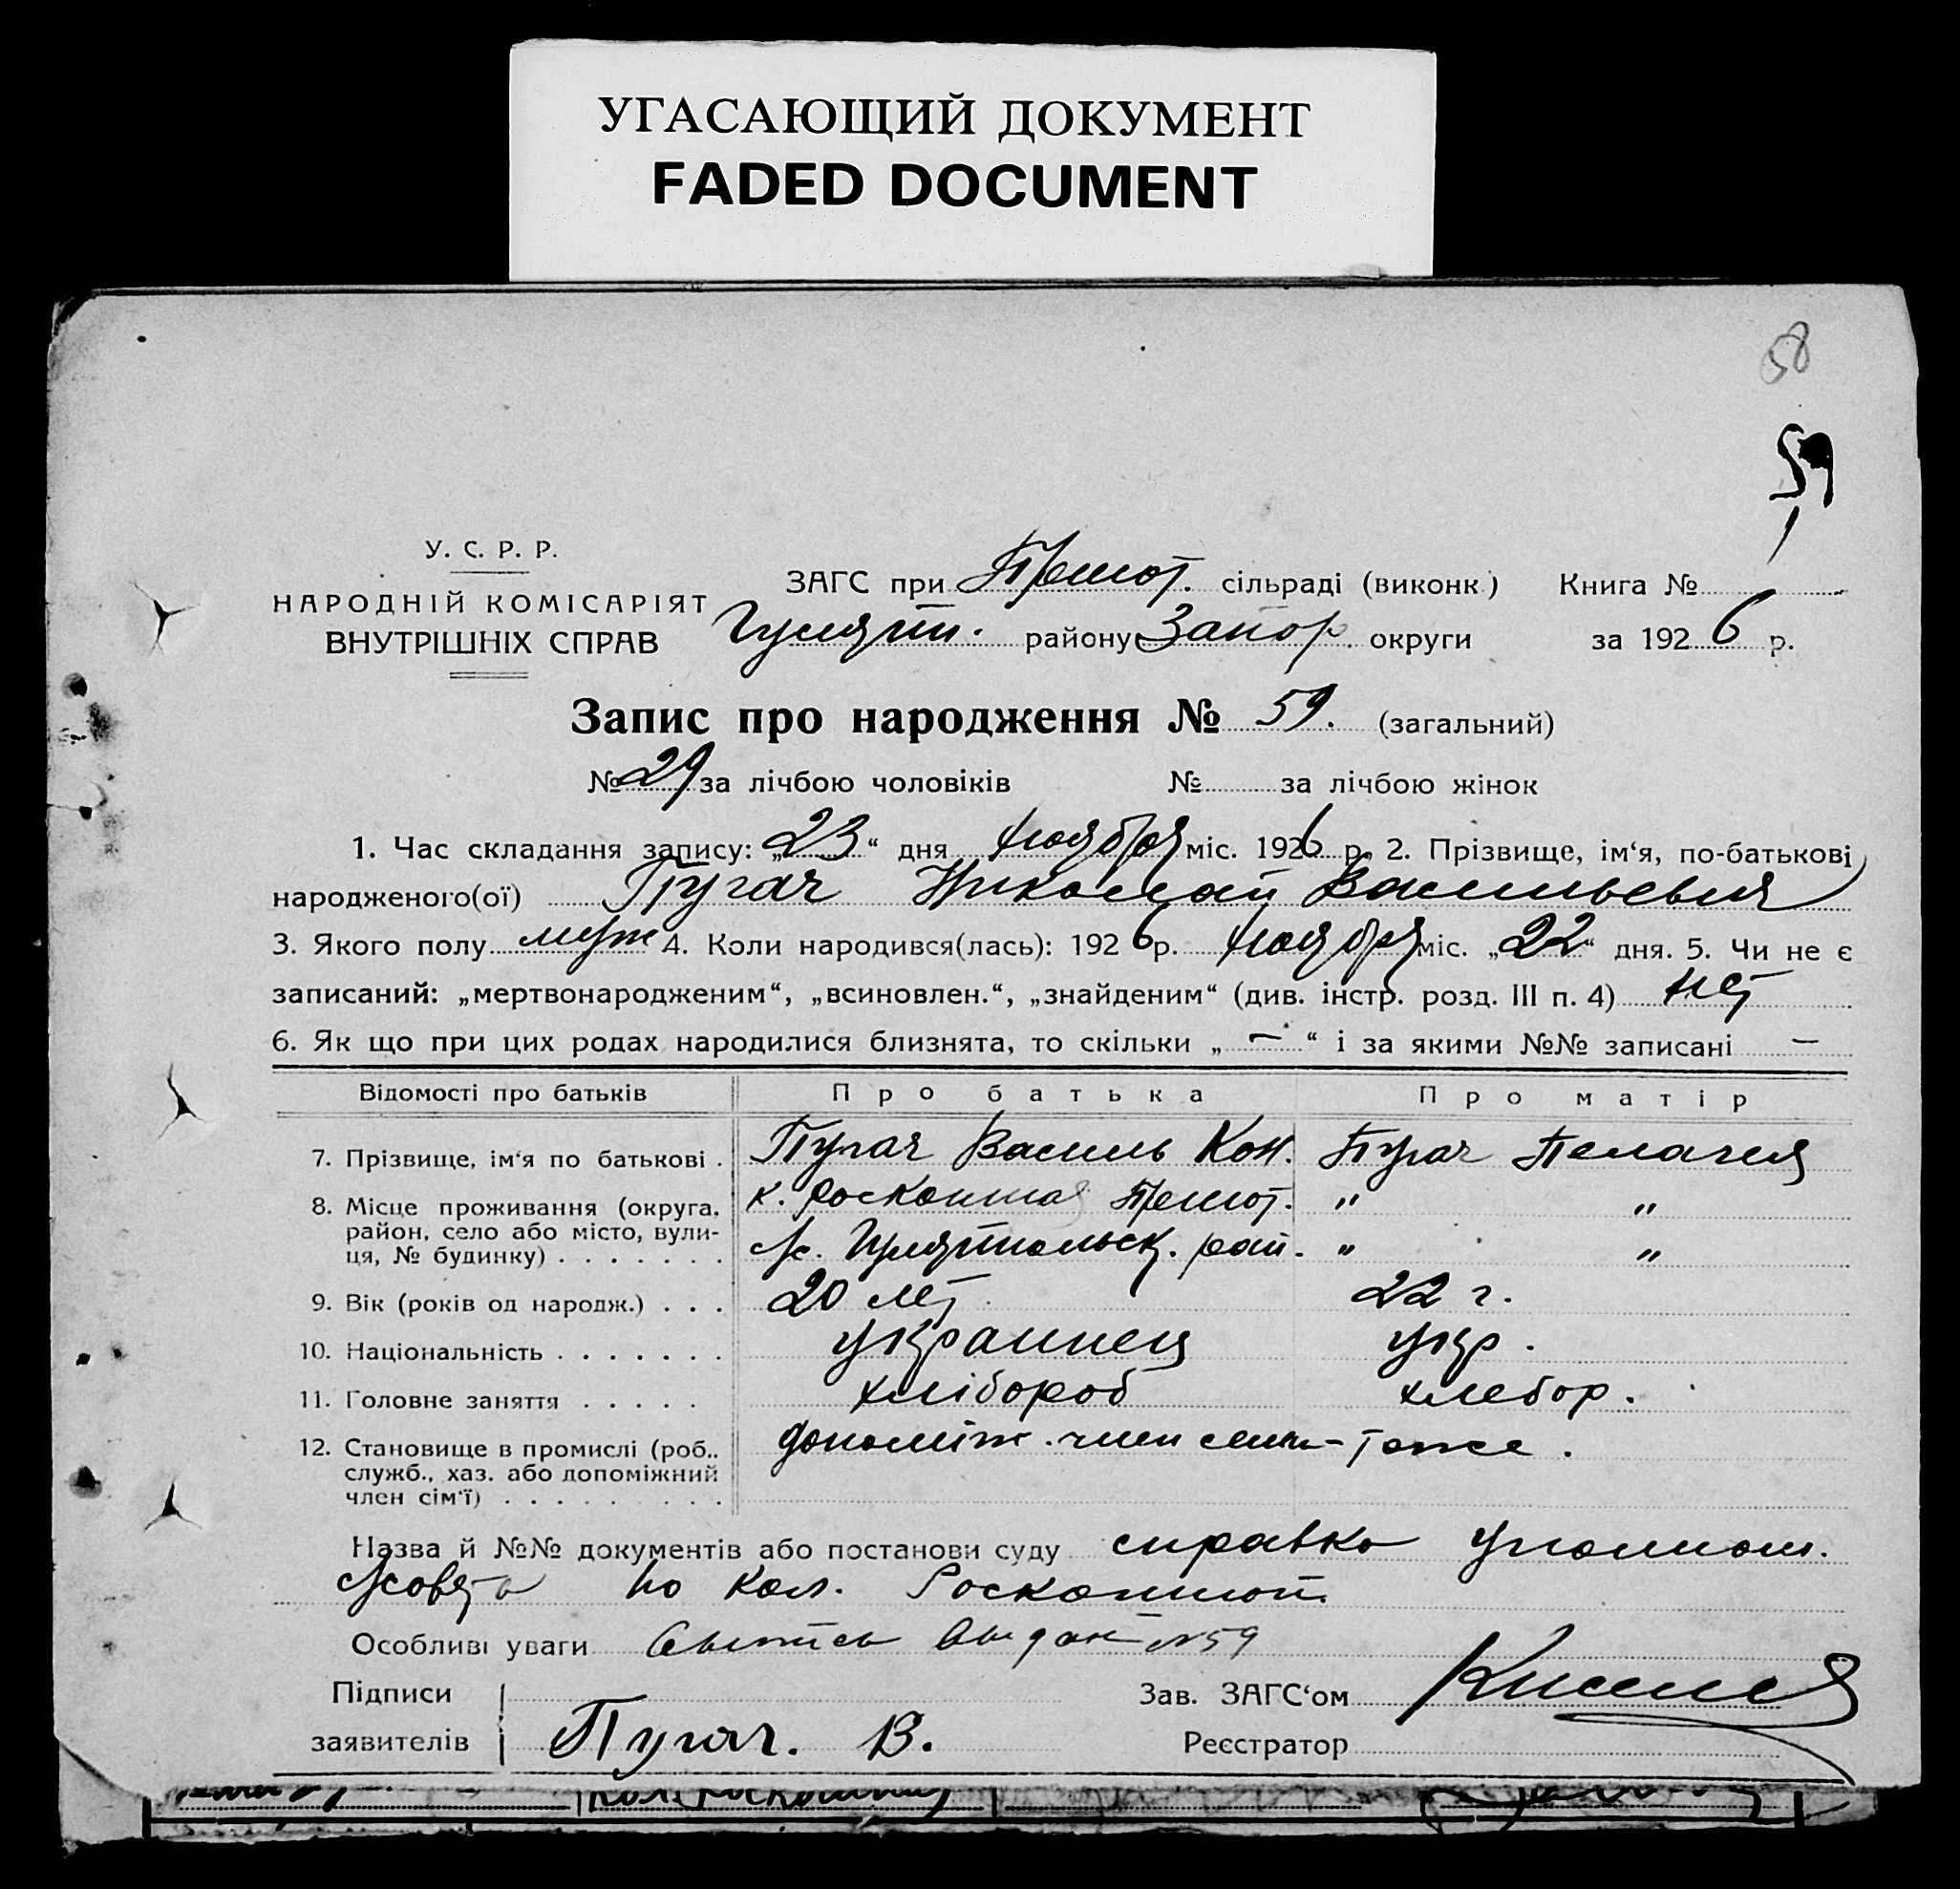 УГАСАЮЩИЙ ДОКУМЕНТ
FADED DOCUMENT
58
59
У. С. Р. Р.
НАРОДНІЙ КОМІСАРІЯТ
ВНУТРІШНІХ СПРАВ
ЗАГС при сільраді (виконк) Книга №
Гуляйп. району Запор. округи за 1926 р.
Запис про народження № 59. (загальний)
№ 29 за лічбою чоловіків № за лічбою жінок
1. Час складання запису: „23“ дня ноября міс. 1926 р. 2. Прізвище, ім‘я, по-батькові
народженого(ої) Пугач Николай Васильевич
3. Якого полу муж 4. Коли народився(лась): 1926 р. ноября міс. „22“ дня. 5. Чи не є
записаний: „мертвонародженим“, „всиновлен.“, „знайденим“ (див. інстр. розд. III п. 4) нет
6. Як що при цих родах народилися близнята, то скільки „ — “ і за якими №№ записані —
Відомості про батьків Про батька Про матір
7. Прізвище, ім‘я по батькові . Пугач Василь Кон. Пугач Пелагея
8. Місце проживання (округа, к. Роскошная " "
район, село або місто, вули-
ця, № будинку) . . . . . . . Гуляйпольск. рай. " "
9. Вік (років од народж.) . . . 20 лет 22 г.
10. Національність . . . . . . . украинец укр.
11. Головне заняття . . . . . хлібороб хлебор.
12. Становище в промислі (роб., допоміж. член семи - тоже.
служб., хаз. або допоміжний
член сім‘ї) . . . . . . . . .
Назва й №№ документів або постанови суду справка уполном.
по кол. Роскошной
Особливі уваги выпись выдан №59
Підписи Зав. ЗАГС‘ом
заявителів Пугач. В. Реєстратор